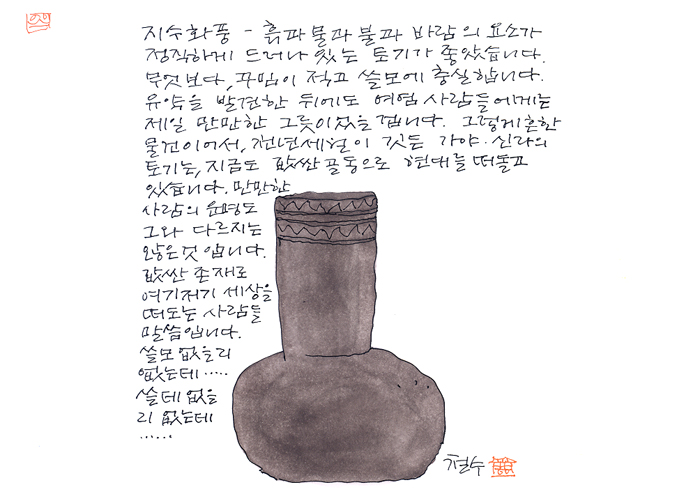 지수화풍 - 흙과 물과 불과 바람의 요소가
정직하게 드러나 있는 토기가 좋았습니다.
무엇보다, 꾸밈이 적고 쓸모에 충실합니다.
유약을 발견한 뒤에도 여염 사람들에게는
제일 만만한 그릇이었을 겁니다. 그렇게 흔한
물건이어서, 천년세월이 깃든 가야·신라의
토기는, 지금도 값싼 골동으로 현대를 떠돌고
있습니다. 만만한
사람의 운명도
그와 다르지는
않은것 입니다.
값싼 존재로
여기저기 세상을
떠도는 사람들
말씀입니다.
쓸모 없을리
없는데 ·····
쓸데 없을
리 없는데
······
철수